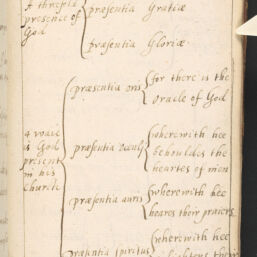 A threefld
presence of
God
præsentia Gratiæ
præsentia Gloriæ
4 waie
is God
present
in his
Church
præsentia oris
for there is the
Oracle of God
præsentia oculi
wherewith hee
behouldes the
heartes of men
præsentia auris
wherewith hee
heares their praiers
præsentia spiritus
wherewith hee